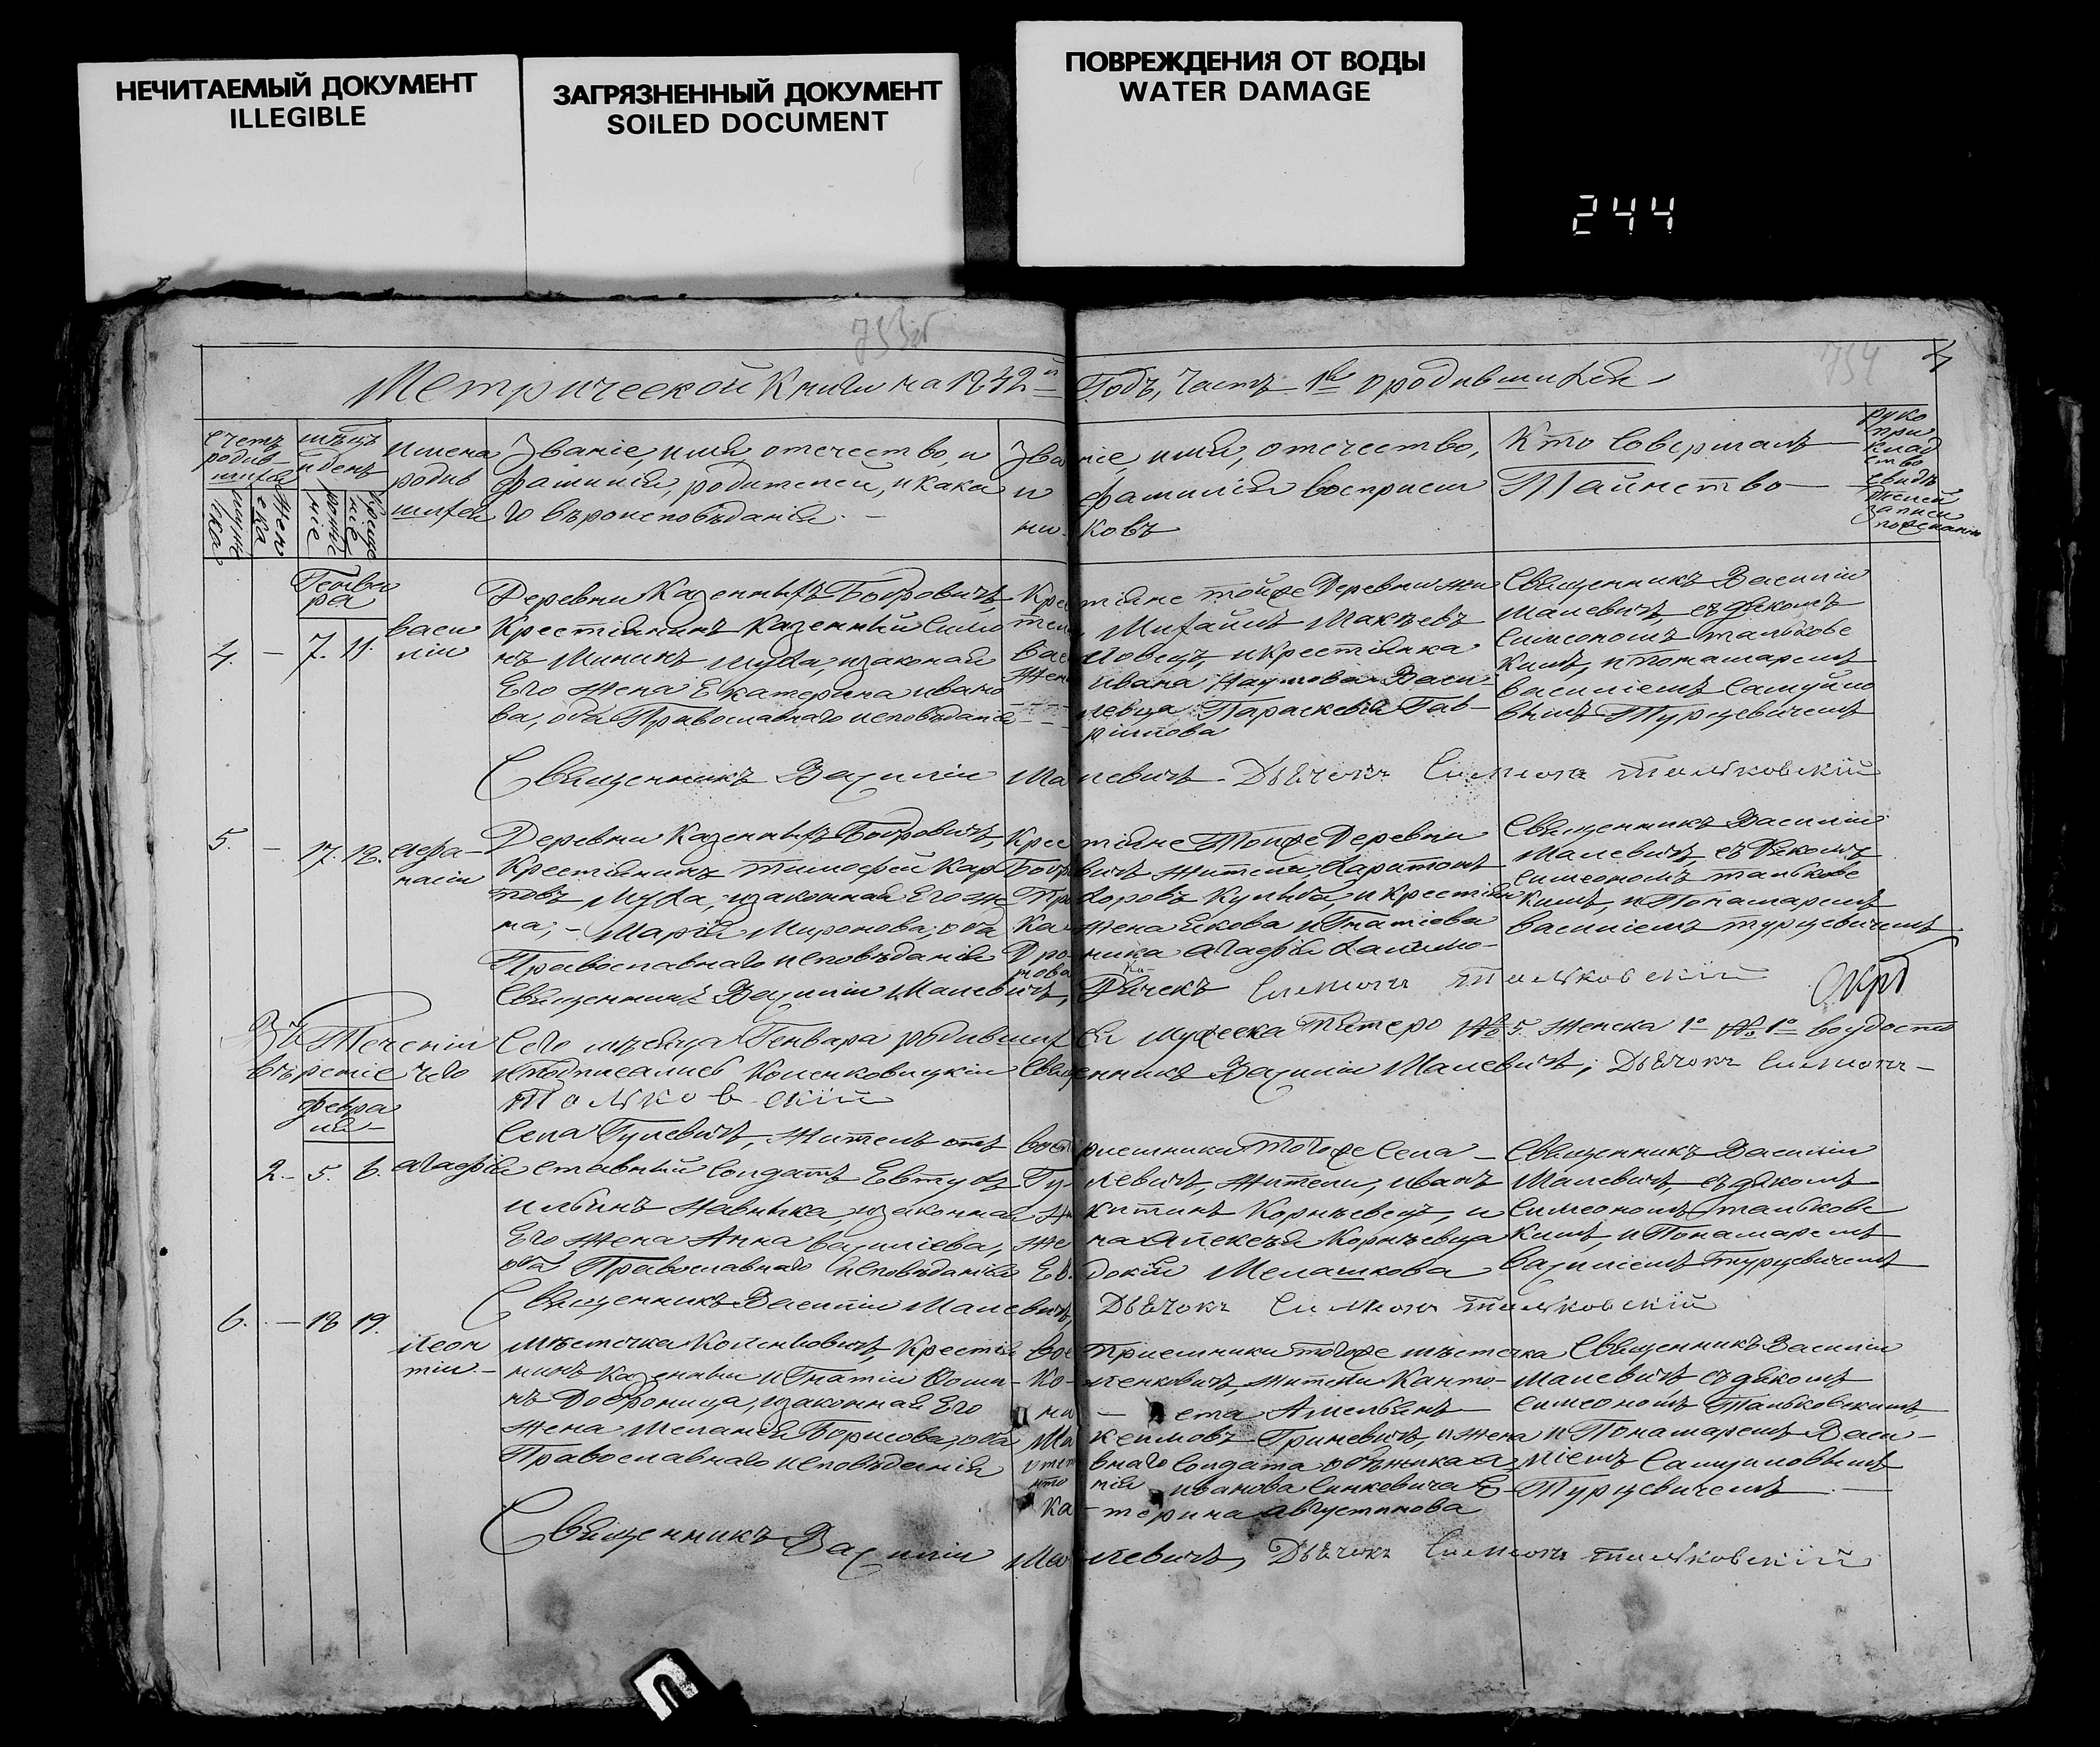 НЕЧИТАЕМЫЙ ДОКУМЕНТ
ILLEGIBLE
ЗАГРЯЗНЕННЫЙ ДОКУМЕНТ
SOILED DOCUMENT
ПОВРЕЖДЕНИЯ ОТ ВОДЫ
WATER DAMAGE
244
754
Метрической Книги на 1842й Годъ, Часть 1я о родившихся
Счетъ родившихся
мѣсяцъ и день
Имена родившихся
Званіе, имя, отечество, и фамилія, родителей, и какаго вѣроисповѣданія
Званіе, имя, отечество, и фамилія воспріемниковъ
Кто совершалъ Таинство
Генваря
4. — 7. 11. Василій
Деревни Казенныхъ Бобровичъ,
Крестьянинъ Казенный Симо
нъ Мининъ Муха, и законная
Его жена Екатерина Ивано
ва, оба Православнаго исповѣданія
Крестьяне тойже Деревни жи
тели Михаилъ
и Крестьянка
жена Ивана Наумова Васи
левца Параскевія Гав
рилова
Священникъ Василій
Малевичъ, съ дьякомъ
Симеономъ Тальковс
кимъ, и Пономаремъ
Василіемъ Самуйло
вымъ Турцевичемъ
Священникъ Василій Малевичъ. Дьячокъ Симеонъ Тальковскій
5. — 17. 18. Афанасій
Деревни Казенныхъ Бобровичъ,
Крестьянинъ Тимофей Кар
повъ Муха, и законная Его же
на, Марія Миронова, оба
Православнаго исповѣданія
Крестьяне Тойже Деревни
Бобровичъ Жители, Харитонъ
и Крестьян
ка жена Якова Игнатіева
Агафія
Священникъ Василій
Малевичъ, съ дьякомъ
Симеономъ Тальковс
кимъ, и Пономаремъ
Василіемъ Турцевичемъ
Священникъ Василій Малевичъ, Дьячекъ Симеонъ Тальковскій
Въ Теченіи Сего мѣсяца Генваря родившихся мужеска пятеро № 5. женска 1о № 1о во удосто
вѣреніе чего и подписались Коленковицкій Священникъ Василій Малевичъ, Дьячокъ Симеонъ
Тальковскій
Февраля
2. 5. 6. Агафія
Села Гулевичъ, житель от
ставный Солдатъ Евтухъ
Ильинъ и законная
Его жена Анна Василіева,
оба Православнаго исповѣданія
Воспріемники Тогоже Села
Гулевичъ, жители, Иванъ
Никитинъ Корнѣевецъ, и
жена Алексѣя Корнѣевца
Евдокія Мелашкова
Священникъ Василій
Малевичъ, съ дьякомъ
Симеономъ Тальковс
кимъ, и Пономаремъ
Василіемъ Турцевичемъ
Священникъ Василій Малевичъ, Дьячокъ Симеонъ Тальковскій
6. — 18 19. Леонтій
Мѣстечка Коленковичъ, Крестья
нинъ Казенный Игнатій Фоми
нъ и законная Его
жена Меланія Борисова, оба
Православнаго исповѣданія
Воспріемники тогоже мѣстечка
Коленковичъ, жители
Гриневичъ, и жена
Солдата
Иванова Синкевича Е
Катерина Августинова
Священникъ Василій
Малевичъ съ дьякомъ
Симеономъ Тальковскимъ,
и Пономаремъ Васи
ліемъ Самуиловымъ
Турцевичемъ
Священникъ Василій Малевичъ, Дьячокъ Симеонъ Тальковскій